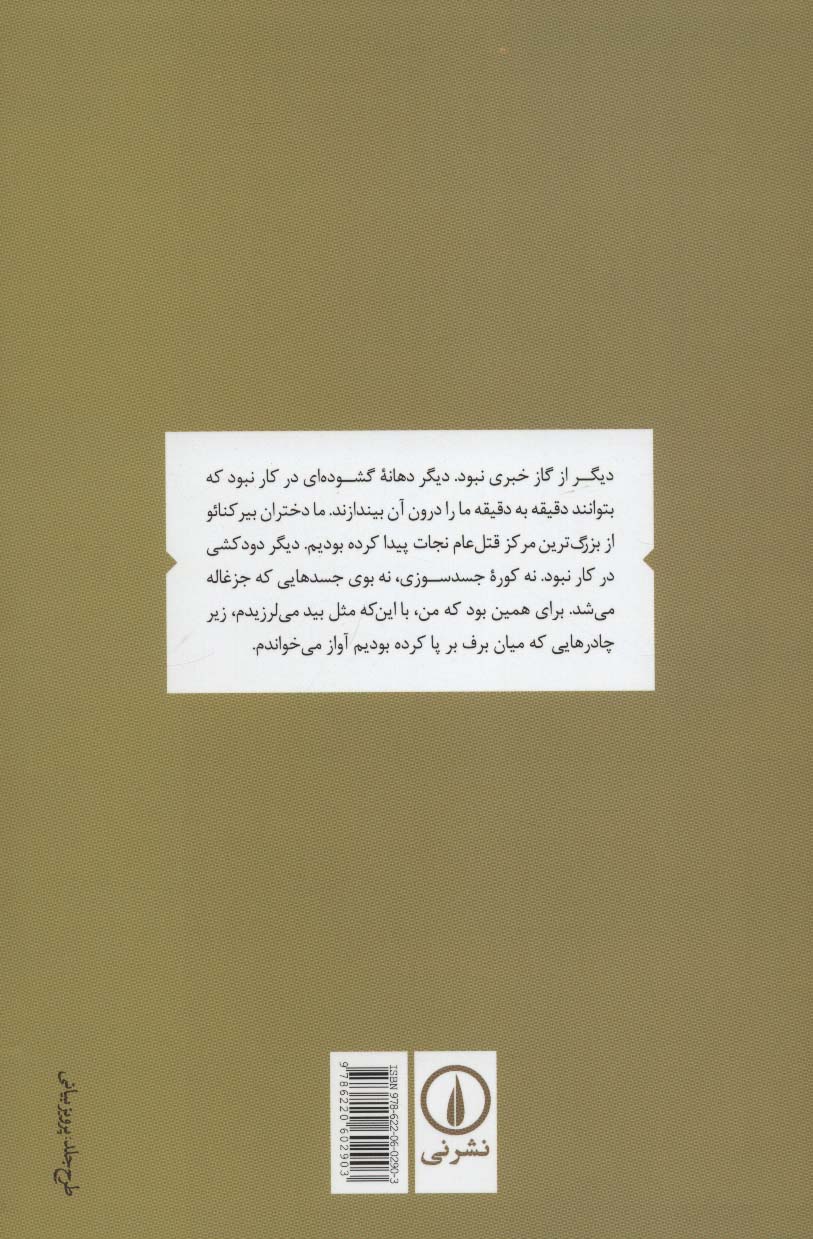 دیگر از گاز خبری نبود. دیگر دهانهٔ گشوده‌ای در کار نبود که
بتوانند دقیقه به دقیقه ما را درون آن بیندازند. ما دختران بیرکنائو
از بزرگ‌ترین مرکز قتل‌عام نجات پیدا کرده بودیم. دیگر دودکشی
در کار نبود. نه کورهٔ جسدسوزی، نه بوی جسدهایی که جزغاله
می‌شد. برای همین بود که من، با این‌که مثل بید می‌لرزیدم، زیر
چادرهایی که میان برف بر پا کرده بودیم آواز می‌خواندم.
نشرنی
ISBN 978-622-06-0290-3
9786220602903
طرح جلد: پرویز بیانی